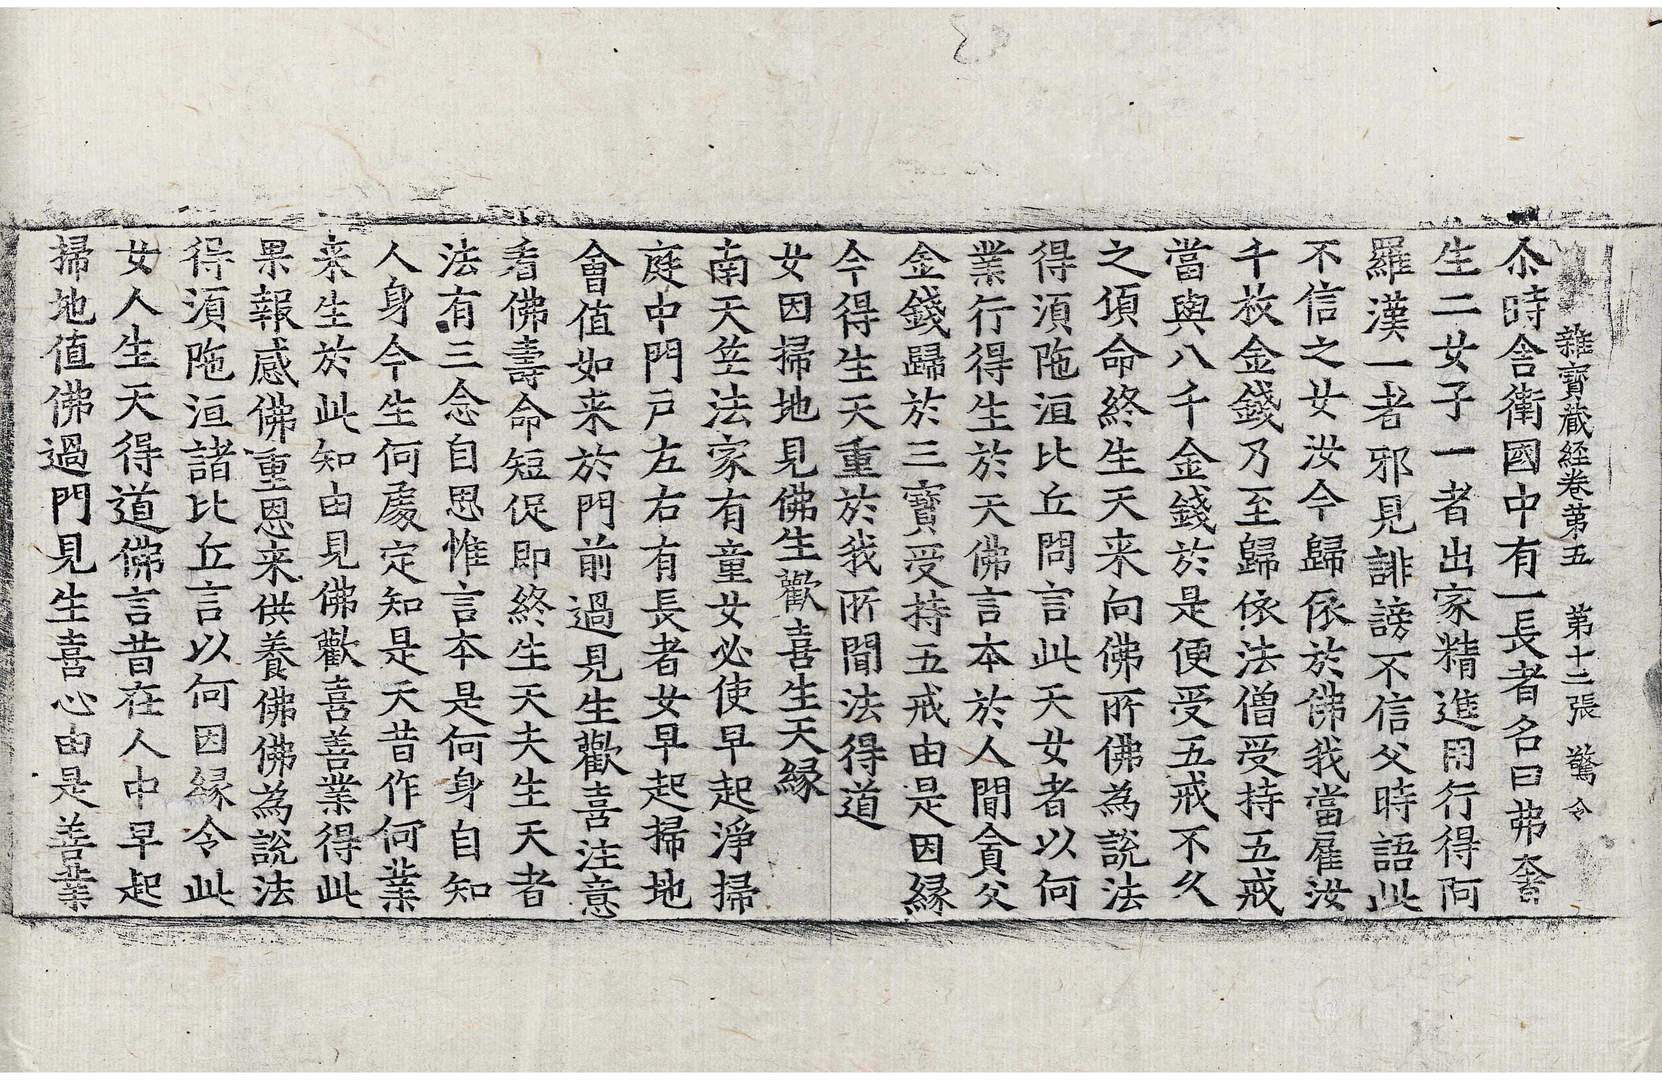 雜寶蔵経卷第五　第十二張　驚　令
尒時舎衛國中有一長者名曰弗奢
生二女子一者出家精進用行得阿
羅漢一者邪見誹謗不信父時語此
不信之女汝今歸依於佛我當雇汝
千枚金錢乃至歸依法僧受持五戒
當與八千金錢於是便受五戒不久
之頃命終生天来向佛所佛為說法
得須陁洹比丘問言此天女者以何
業行得生於天佛言本於人間貪父
金錢歸於三寶受持五戒由是因縁
今得生天重於我所聞法得道
女因掃地見佛生歡喜生天縁
南天笁法家有童女必使早起淨掃
庭中門戸左右有長者女早起掃地
會值如来於門前過見生歡喜注意
看佛壽命短促即終生天夫生天者
法有三念自思惟言本是何身自知
人身今生何處定知是天昔作何業
来生於此知由見佛歡喜善業得此
果報感佛重恩来供養佛佛為說法
得須陁洹諸比丘言以何因縁令此
女人生天得道佛言昔在人中早起
掃地值佛過門見生喜心由是善業